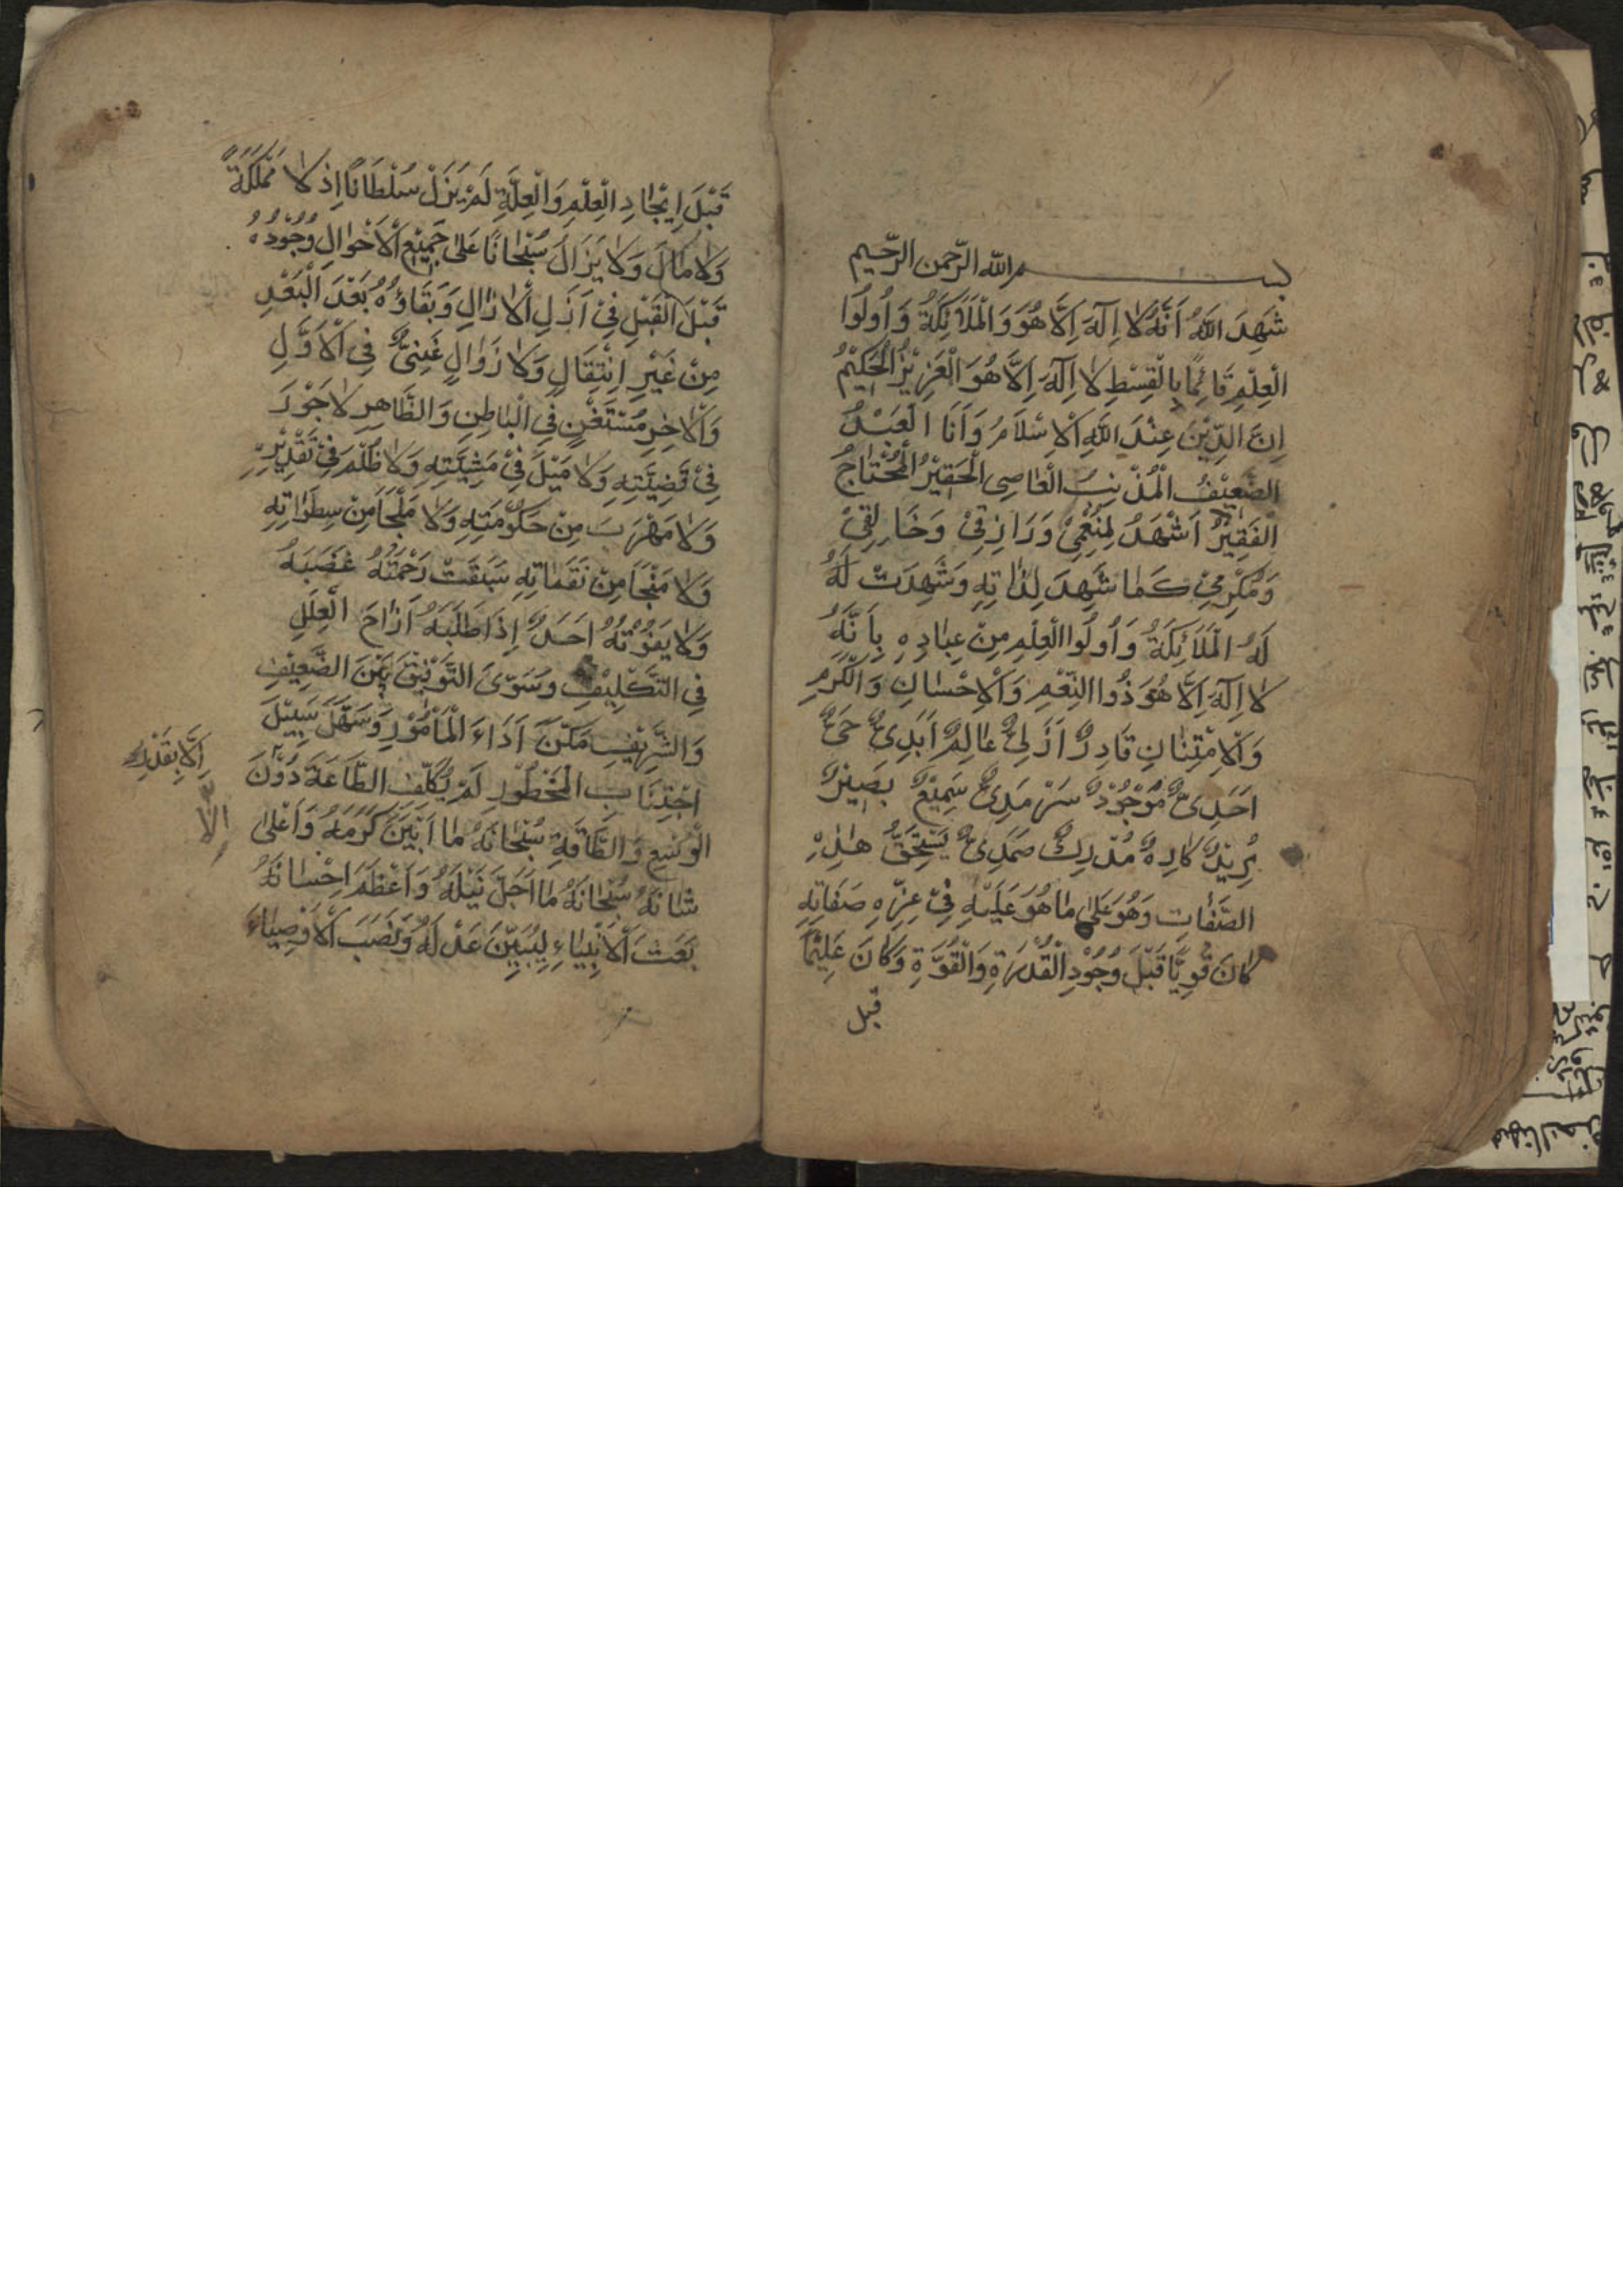 بسم الله الرّحمن الرّحيم
شَهِدَ اللهُ اَنَّهُ لا اِلهَ اِلَّا هُوَ وَالْمَلَائِكَةُ وَاُولُوا
الْعِلْمِ قَائِمًا بِالْقِسْطِ لا اِلهَ اِلَّا هُوَ الْعَزِيْزُ الْحَكِيْمُ
اِنَّ الدِّيْنَ عِنْدَ اللهِ اْلاِسْلَامُ وَاَنَا الْعَبْدُ
الضَّعِيْفُ الْمُذْنِبُ الْعَاصِى الْحَقِيْرُ الْمُحْتَاجُ
الْفَقِيْرُ اَشْهَدُ لِمُنْعِمِىْ وَرَازِقِىْ وَخَالِقِىْ
وَمُكْرِمِىْ كَمَا شَهِدَ لِذَاتِهِ وَشَهِدَتْ لَهُ
لَهُ الْمَلَائِكَةُ وَاُولُوا الْعِلْمِ مِنْ عِبَادِهِ بِاَنَّهُ
لا اِلهَ اِلَّا هُوَ ذُوا النِّعَمِ وَاْلاِحْسَانِ وَالْكَرَمِ
وَاْلاِمْتِنَانِ قَادِرٌ اَزَلِىٌّ عَالِمٌ اَبَدِىٌّ حَىٌّ
اَحَدِىٌّ مَوْجُوْدٌ سَرْمَدِىٌّ سَمِيْعٌ بَصِيْرٌ
مُرِيْدٌ كَارِهٌ مُدْرِكٌ صَمَدِىٌّ يَسْتَحِقُّ هذِهِ
الصِّفَات وَهُوَ عَلى مَا هُوَ عَلَيْهِ فِىْ عِزِّهِ صِفَاتِهِ
كَانَ قَوِيًّا قَبْلَ وُجُوْدِ الْقُدْرَةِ وَالْقُوَّةِ وَكَانَ عَلِيْمًا
قبل
قَبْلَ اِيْجَادِ الْعِلْمِ وَالْعِلَّةِ لَمْ يَزَلْ سُلْطَانًا اِذْ لا مَمْلَكَةَ
وَلَا مَالَ وَلَا يَزَالُ سُبْحَانًا عَلى جَمِيْعِ اْلاَحْوَالِ وُجُوْدُهُ
قَبْلَ الْقَبْلِ فِىْ اَزَلِ اْلازَالِ وَبَقَاؤُهُ بَعْدَ الْبَعْدِ
مِنْ غَيْرِ اِنْتِقَالٍ وَلَا زَوَالٍ غَنِىٌّ فِى اْلاَوَّلِ
وَاْلاخِرِ مُسْتَغْنٍ فِى الْبَاطِنِ وَالظَّاهِرِ لا جَوْرَ
فِىْ قَضِيَّتِهِ وَلا مَيْلَ فِىْ مَشِيَّتِهِ وَلا ظُلْمَ فِىْ تَقْدِيْرِهِ
وَلَا مَهْرَبَ مِنْ حُكُوْمَتِهِ وَلا مَلْجَأَ مِنْ سَطَوَاتِهِ
وَلَا مَنْجَأَ مِنْ نَقَمَاتِهِ سَبَقَتْ رَحْمَتُهُ غَضَبَهُ
وَلَا يَفُوْتُهُ اَحَدٌ اِذَا طَلَبَهُ اَزَاحَ الْعِلَلِ
فِى التَّكْلِيْفِ وَسَوَّىَ التَّوْفِيْقَ بَيْنَ الضَّعِيْفِ
وَالشَّرِيْفِ مَكَّنَ اَدَاءَ الْمَأْمُوْرِ وَسَهَّلَ سَبِيْلَ
اجْتِنَابِ الْمَحْظُوْرِ لَمْ يُكَلِّف الطَّاعَةَ دُوْنَ
الْوُسْعِ وَالطَّاقَةِ سُبْحَانَهُ مَا اَبْيَنَ كَرَمَهُ وَاَعْلى
شَانَهُ سُبْحَانَهُ مَا اَجَلَّ نَيْلَهُ وَاَعْظَمَ اِحْسَانَهُ
بَعَثَ اْلاَنْبِيَاءِ لِيُبَيِّنَ عَدْلَهُ وَنَصَبَ اْلاَوْصِيَاءَ
اِلَّا